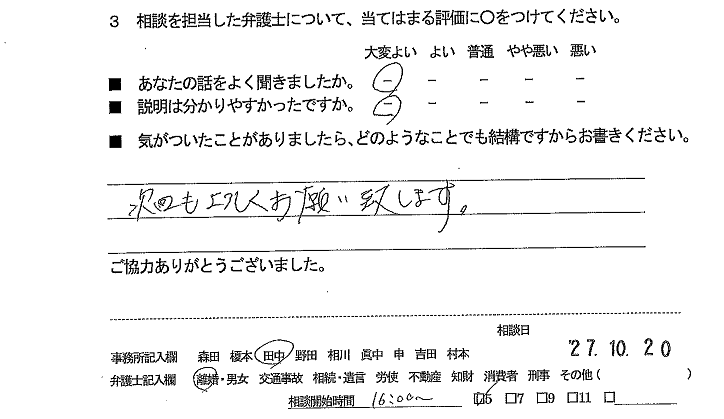 3 相談を担当した弁護士について、当てはまる評価に○をつけてください。
大変よい よい 普通 やや悪い 悪い
■ あなたの話をよく聞きましたか。 － － － － －
■ 説明は分かりやすかったですか。 － － － － －
■ 気がついたことがありましたら、どのようなことでも結構ですからお書きください。
次回も宜しくお願い致します。
ご協力ありがとうございました。
相談日
事務所記入欄 森田 榎本 田中 野田 相川 眞中 申 吉田 村本 '27.10.20
弁護士記入欄 離婚・男女 交通事故 相続・遺言 労使 不動産 知財 消費者 刑事 その他( )
相談開始時間 16:00～ □5 □7 □9 □11 □